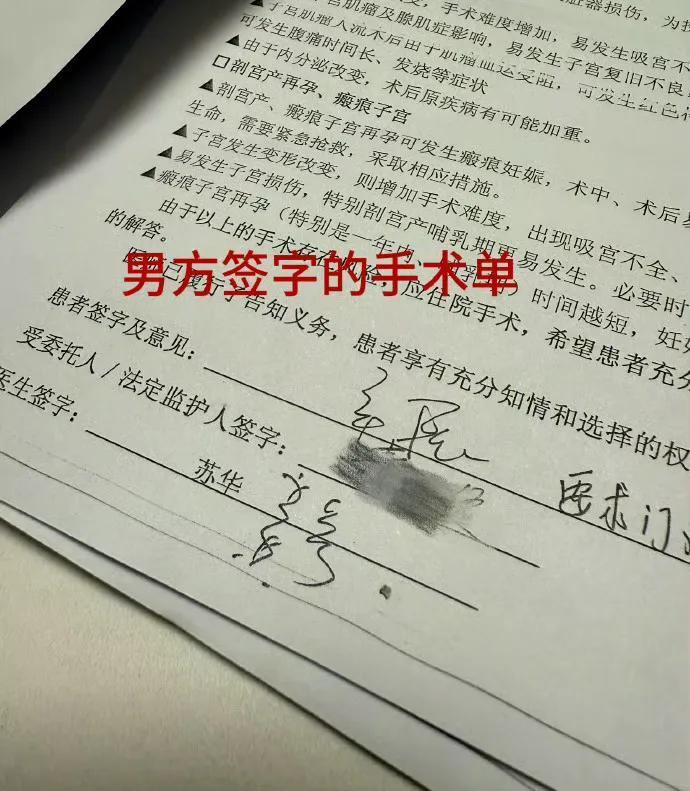 手术难度增加，易发生脏器损伤，为
▲子宫肌瘤及腺肌症影响，易发生吸宫不
▲子宫肌瘤人流术后由于肌瘤血运受阻，可发生红色
可发生腹痛时间长、发烧等症状
▲由于内分泌改变，术后原疾病有可能加重。
□剖宫产再孕、瘢痕子宫
▲剖宫产、瘢痕子宫再孕可发生瘢痕妊娠，术中、术后
生命，需要紧急抢救，采取相应措施。
▲子宫发生变形改变，则增加手术难度，出现吸宫不全、
▲易发生子宫损伤，特别剖宫产哺乳期更易发生。必要时
▲瘢痕子宫再孕（特别是一年内、 时间越短，妊
由于以上的手术 应住院手术，希望患者充分
的解答。
男方签字的手术单
已履行了告知义务，患者享有充分知情和选择的权
患者签字及意见：
要求门
受委托人／法定监护人签字：
医生签字：
苏华